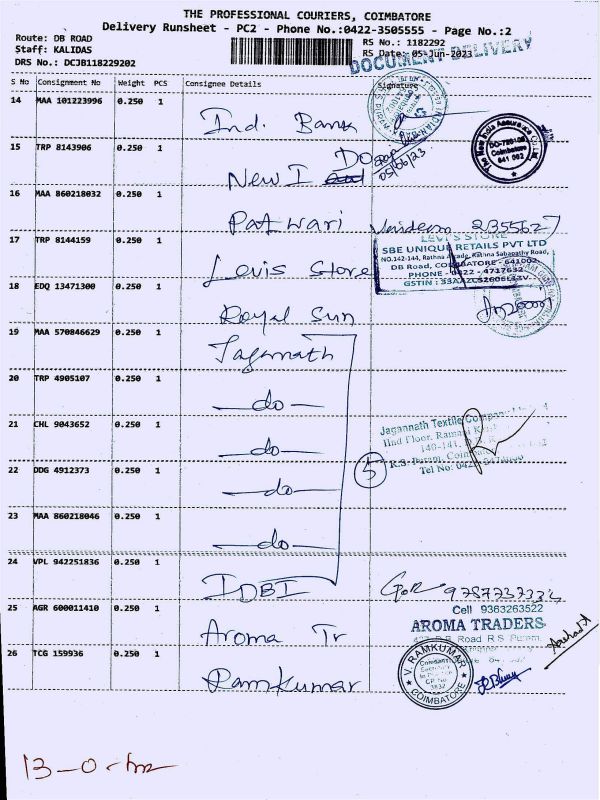 THE PROFESSIONAL COURIERS, COIMBATORE
Delivery Runsheet - PC2 - Phone No.:0422-3505555 - Page No.:2
Route: DB ROAD
Staff: KALIDAS
DRS No.: DCJB118229202
RS No.: 1182292
RS Date: 05-Jun-2023
DOCUMENT DELIVERY
S No Consignment No Weight PCS Consignee Details Signature
14 MAA 101223996 0.250 1 Ind. Bank
15 TRP 8143906 0.250 1 New I DO
05/06/23
The New India Assurance Co. Ltd.
Coimbatore
641 002
16 MAA 860218032 0.250 1 Patwari
17 TRP 8144159 0.250 1 Levis Store
LEVI'S STORE
SBE UNIQUE RETAILS PVT LTD
NO.142-144, Rathna Arcade, Rathna Sabapathy Road,
DB Road, COIMBATORE - 641002
PHONE - 0422 - 4717632
GSTIN :
18 EDQ 13471300 0.250 1 Royal Sun
19 MAA 570846629 0.250 1 Jagannath
20 TRP 4905107 0.250 1 -do-
21 CHL 9043652 0.250 1 -do-
Jagannath Textile Company
IInd Floor,
140-141,
R.S. Puram,
Tel No:
5
22 DDG 4912373 0.250 1 -do-
23 MAA 860218046 0.250 1 -do-
24 VPL 942251836 0.250 1 IDBI
25 AGR 600011410 0.250 1 Aroma Tr
Cell 9363263522
AROMA TRADERS
D.B. Road R S Puram,
26 TCG 159936 0.250 1 Ramkumar
V. RAMKUMAR
Company
Secretary
In Practice
CP No
3832
COIMBATORE